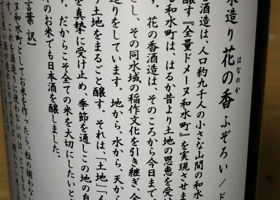 水造り 花の香 ふぞろい／ド
はなのか
香酒造は、人口約九千人の小さな山間の和水
醸す『全量ドメーヌ和水町』を実現させま
和水町は、はるか昔より大地の恩恵を受
、花の香酒造は、そのころから今日まで、
し、その同水域の稲作文化を引き継ぎ、全
造りをしています。地から、水から、天から
「土地をまるごと醸す。それは、「土地」「人
を真摯に受け止め、季節を通じこの地の自
、だからこそ全ての米を大切にしたいと
のお米でも日本酒を醸しました。
言葉 訳】